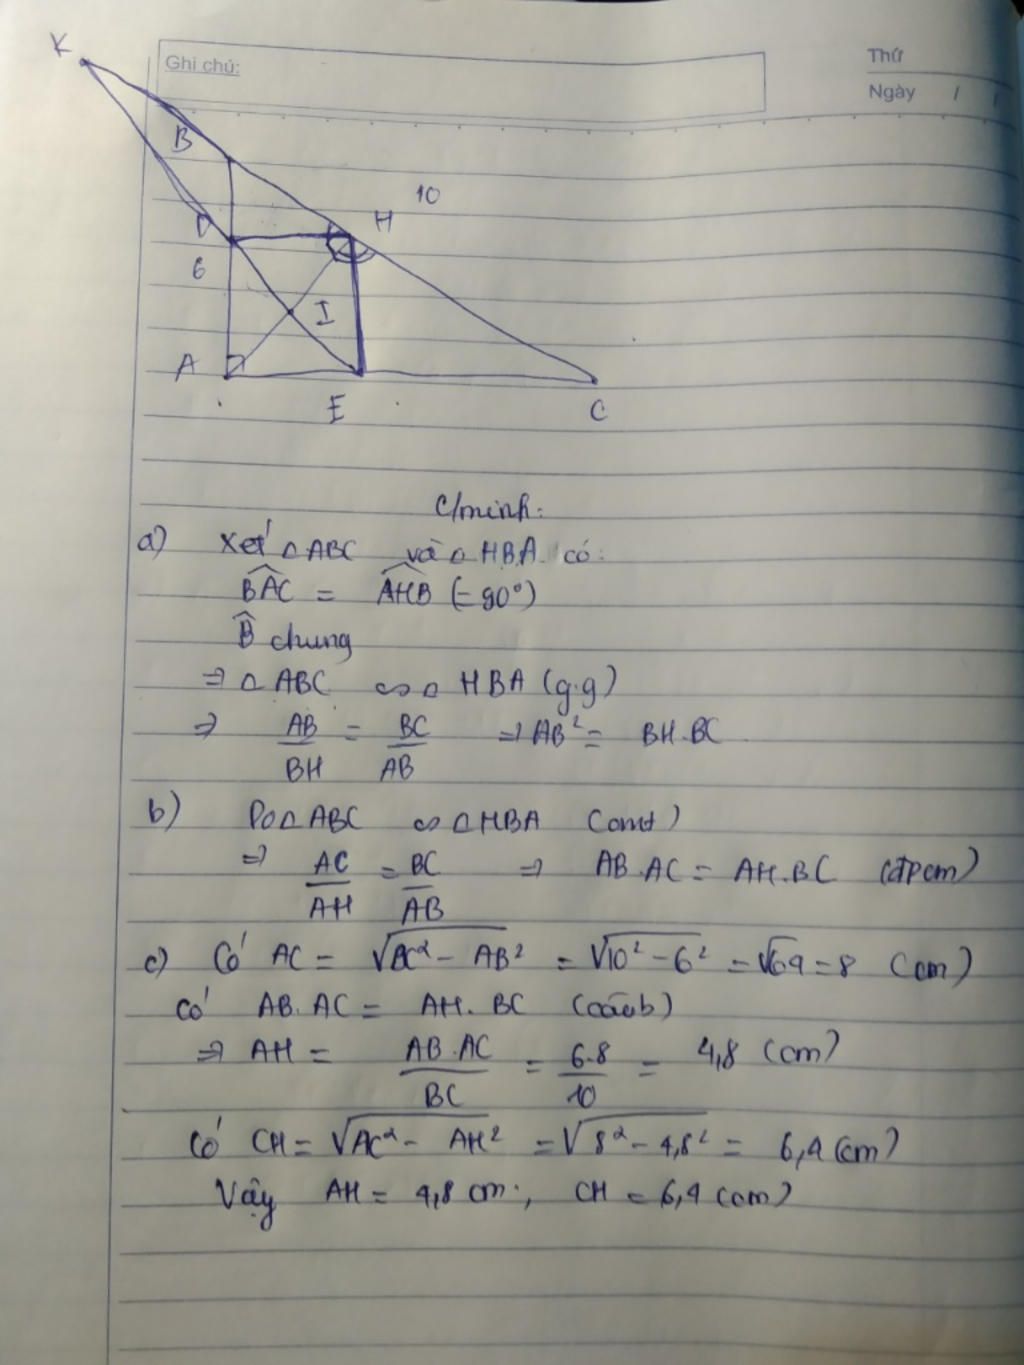 K
Ghi chú:
Thứ
Ngày / /
B
10
H
D
6
I
A
E
C
C/minh:
a) Xét △ABC và △HBA có:
BAC = AHB (=90°)
B chung
⇒ △ABC ∽ △HBA (g.g)
⇒ AB/BH = BC/AB ⇒ AB² = BH.BC
b) Do △ABC ∽ △HBA (cmt)
⇒ AC/AH = BC/AB ⇒ AB.AC = AH.BC (đpcm)
c) Có AC = √BC² - AB² = √10² - 6² = √64 = 8 (cm)
Có AB.AC = AH.BC (câu b)
⇒ AH = AB.AC/BC = 6.8/10 = 4,8 (cm)
Có CH = √AC² - AH² = √8² - 4,8² = 6,4 (cm)
Vậy AH = 4,8 cm; CH = 6,4 (cm)